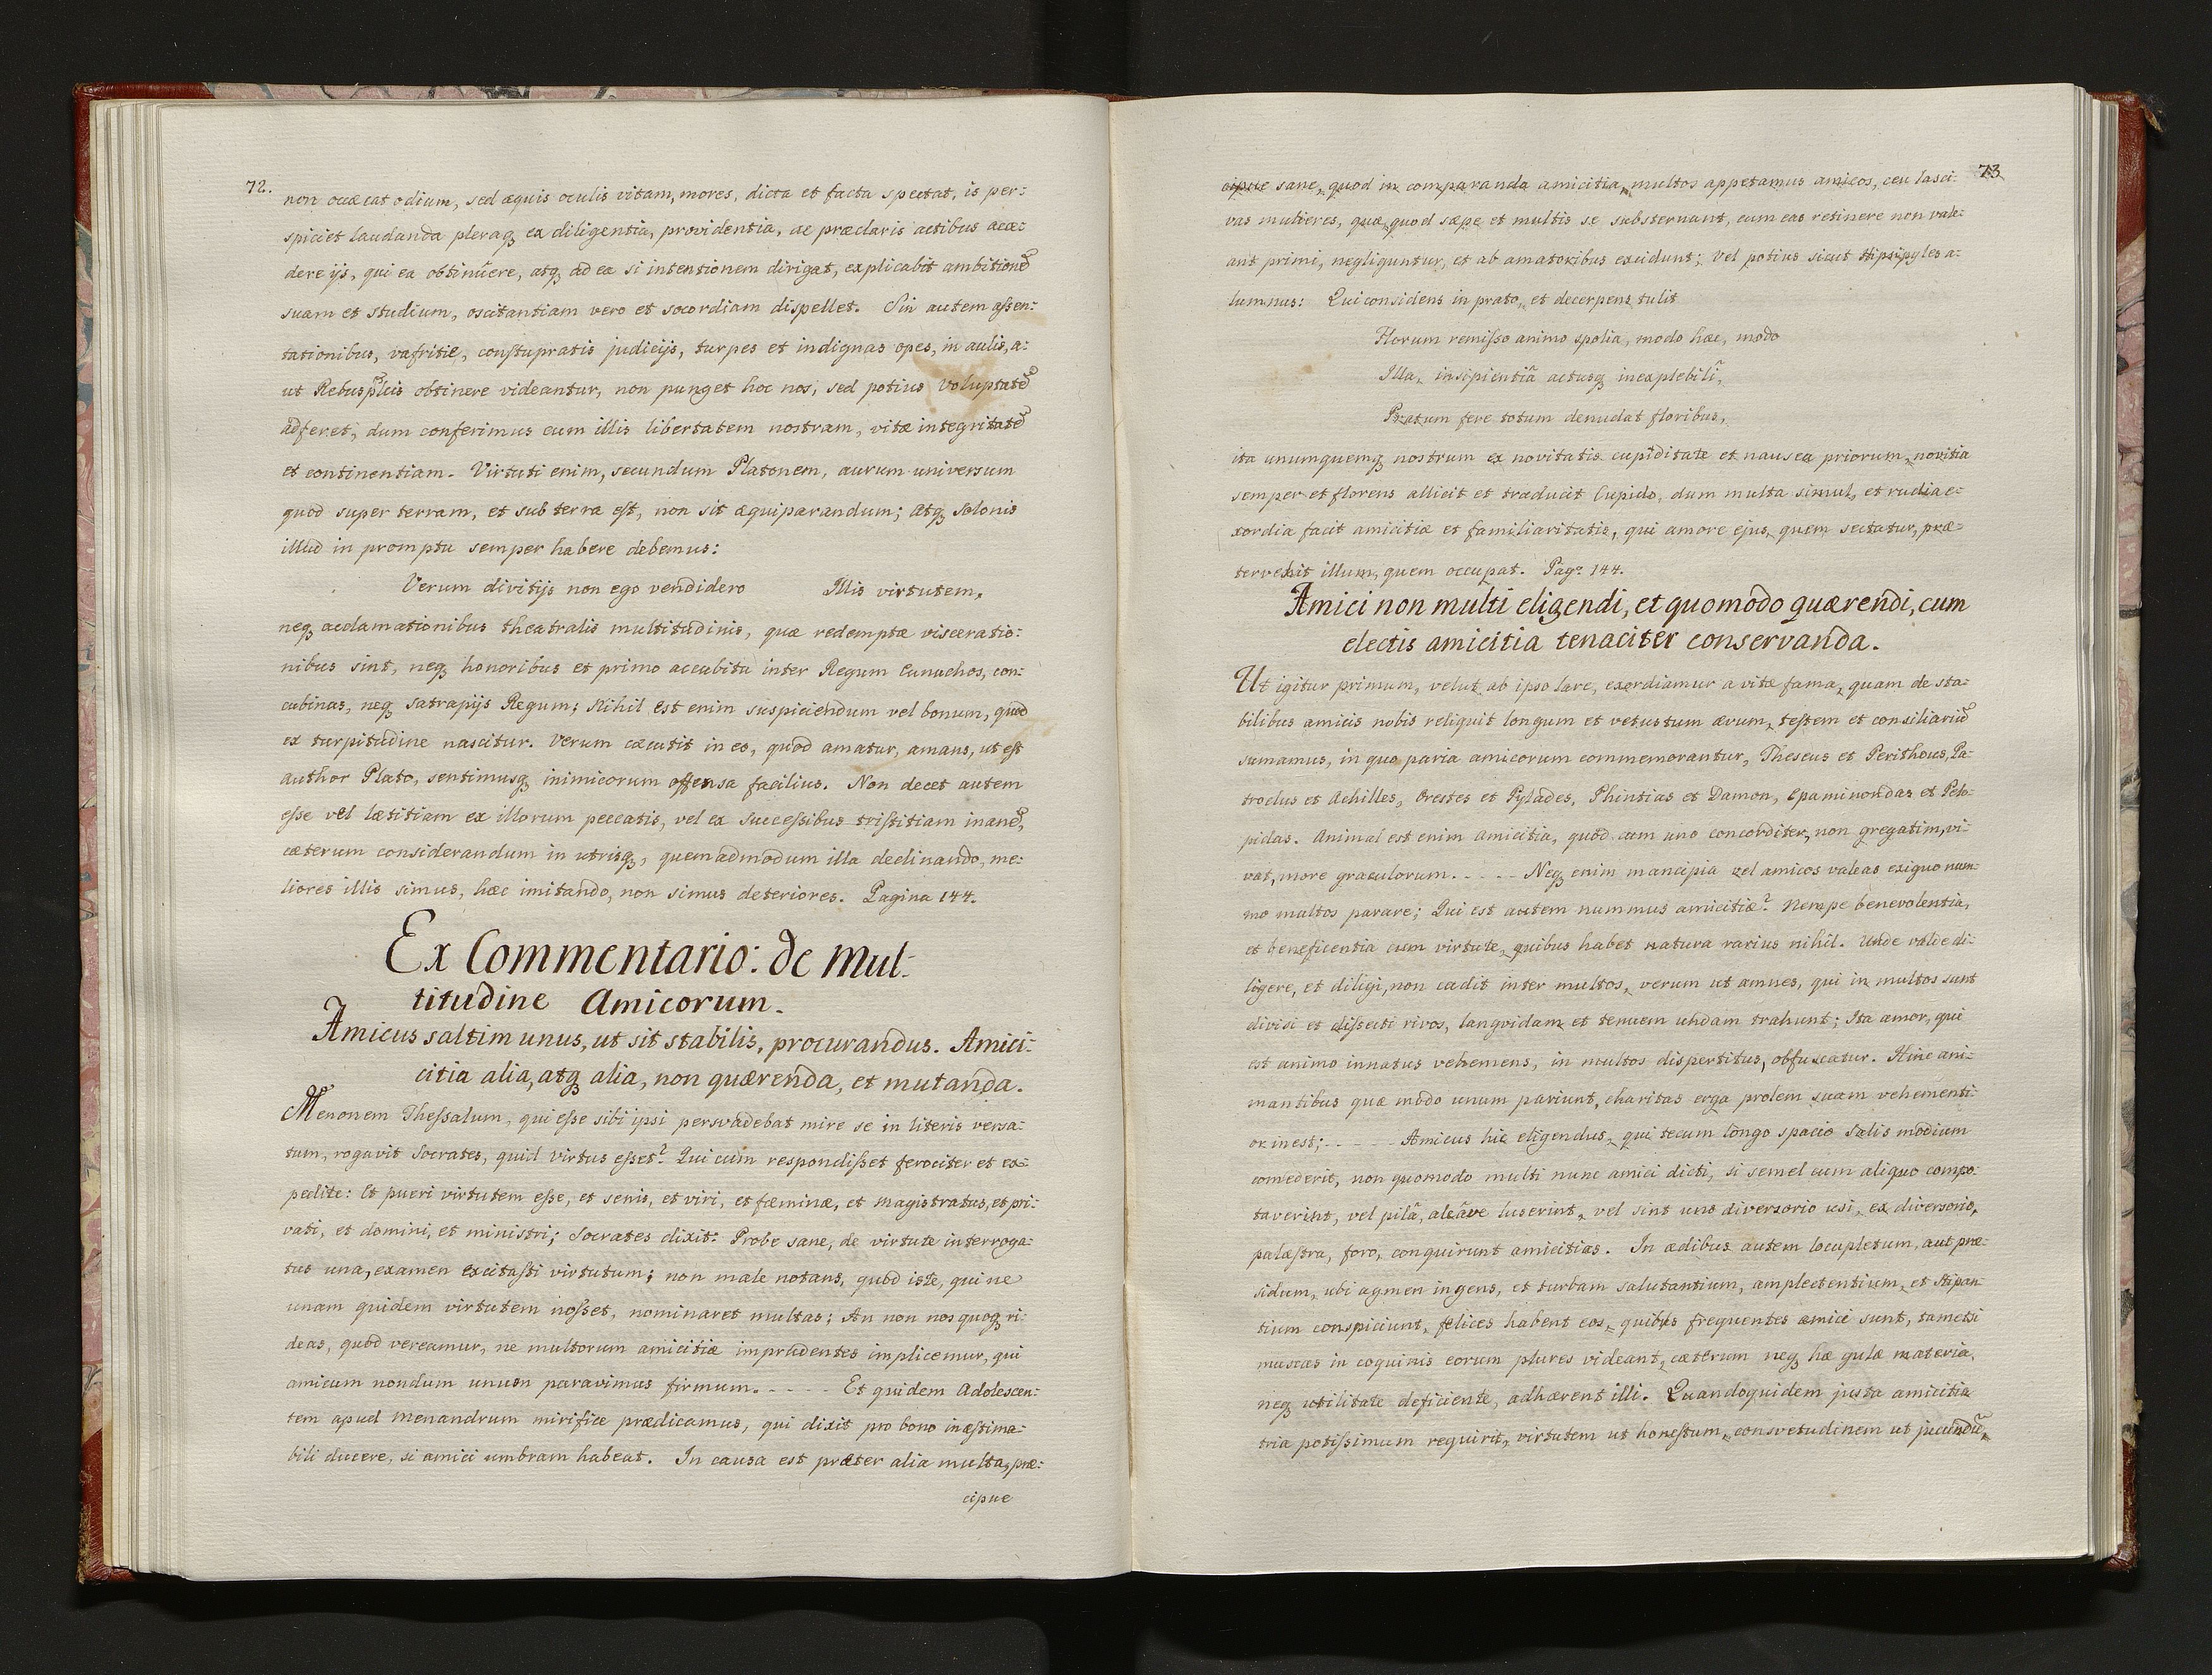 72.
non occæcat odium, sed æquis oculis vitam, mores, dicta et facta spectat, is per:
spiciet laudanda pleraq, ex diligentia, providentia, ac præclaris actibus acce:
dere ijs, qui ea obtinuere, atq, ad ea si intentionem dirigat, explicabit ambitionẽ
suam et studium, oscitantiam vero et socordiam dispellet. Sin autem assen:
tationibus, vafritie, constupratis judicijs, turpes et indignas opes, in aulis, a:
ut Rebus plcis obtinere videantur, non punget hoc nos, sed potius voluptatẽ
adferet, dum conferimus cum illis libertatem nostram, vitæ integritatẽ
et continentiam. Virtuti enim, secundum Platonem, aurum universum
quod super terram, et sub terra est, non sit æquiparandum; atq, Solonis
illud in promptu semper habere debemus:
Verum divitijs non ego vendidero Illis virtutem,
neq, acclamationibus theatralis multitudinis, quæ redemptæ visceratio:
nibus sint, neq, honoribus et primo accubitu inter Regum Eunuchos, con:
cubinas, neq, satrapijs Regum; Nihil est enim suspiciendum vel bonum, quod
ex turpitudine nascitur. Verum cæcutit in eo, quod amatur, amans, ut est
author Plato, sentimusq, inimicorum offensa facilius. Non decet autem
esse vel lætitiam ex illorum peccatis, vel ex successibus tristitiam inanẽ,
cæterum considerandum in utrisq, quemadmodum illa declinando, me:
liores illis simus, hæc imitando, non simus deteriores. Pagina 144.
Ex Commentario: de Mul:
titudine Amicorum.
Amicus saltim unus, ut sit stabilis, procurandus. Amici:
citia alia, atq alia, non quærenda, et mutanda.
Menonem Thessalum, qui esse sibi ipsi persvadebat mire se in literis versa:
tum, rogavit Socrates, quid virtus esset? Qui cum respondisset ferociter et ex:
pedite: Et pueri virtutem esse, et senis, et viri, et fæminæ, et magistratus, et pri:
vati, et domini, et ministri; Socrates dixit: Probe sane, de virtute interroga:
tus una, examen excitasti virtutum; non male notans, quod iste, qui ne
unam quidem virtutem nosset, nominaret multas; An non nos quoq, ri:
deas, quod vereamur, ne multorum amicitiæ imprudentes implicemur, qui
amicum nondum unum paravimus firmum. - - - - Et quidem Adolescen:
tem apud Menandrum mirifice prædicamus, qui dixit pro bono inæstima:
bili ducere, si amici umbram habeat. In causa est præter alia multa, præ:
cipue
73
cipue sane, quod in comparanda amicitia, multos appetamus amicos, ceu lasci:
vas mulieres, quæ, quod sæpe et multis se substernant, cum eas retinere non vale:
ant primi, negliguntur, et ab amatoribus excidunt; Vel potius sicut Hipsipyles a:
lumnus: Qui considens in prato, et decerpens tulit
Florum remisso animo spolia, modo hæc, modo
Illa, insipientiâ actusq inexplebili,
Pratum fere totum denudat floribus,
ita unumquemq, nostrum ex novitatis cupiditate et nausea priorum, novitia
semper et florens allicit et traducit Cupido, dum multa simul, et rudia e:
xordia facit amicitiæ et familiaritatis, qui amore ejus, quem sectatur, præ:
tervehit illum, quem occupat. Pag: 144.
Amici non multi eligendi, et quomodo quærendi, cum
electis amicitia tenaciter conservanda.
Ut igitur primum, velut ab ipso lare, exordiamur a vitæ fama, quam de sta:
bilibus amicis nobis reliquit longum et vetustum ævum, testem et consiliariũ
sumamus, in quo paria amicorum commemorantur, Theseus et Perithous, Pa:
troclus et Achilles, Orestes et Pylades, Phintias et Damon, Epaminondas et Pelo:
pidas. Animal est enim amicitia, quod cum uno concorditer, non gregatim, vi:
vat, more graculorum. - - - - Neq, enim mancipia vel amicos valeas exiguo num:
mo multos parare; Qui est autem nummus amicitiæ? Nempe benevolentia,
et beneficentia cum virtute, quibus habet natura rarius nihil. Unde valde di:
ligere, et diligi, non cadit inter multos, verum ut amnes, qui in multos sunt
divisi et dissecti rivos, langvidam et tenuem undam trahunt; Ita amor, qui
est animo innatus vehemens, in multos dispertitus, obfuscatur. Hinc ani:
mantibus quæ modo unum pariunt, charitas erga prolem suam vehementi:
or inest; - - - - Amicus hic eligendus, qui tecum longo spacio salis modium
comederit, non quomodo multi nunc amici dicti, si semel cum aliquo compo:
taverint, vel pilâ, aleâve luserint, vel sint uno diversorio usi, ex diversorio,
palæstra, foro, conquirunt amicitias. In ædibus autem locupletum, aut præ:
sidum, ubi agmen ingens, et turbam salutantium, amplectentium, et stipan:
tium conspiciunt, felices habent eos, quibus frequentes amici sunt, tametsi
muscas in coquinis eorum plures videant, cæterum neq, hæ gulæ materia,
neq, utilitate deficiente, adhærent illi. Quandoquidem justa amicitia
tria potissimum requirit, virtutem ut honestum, consvetudinem ut jucundũ,